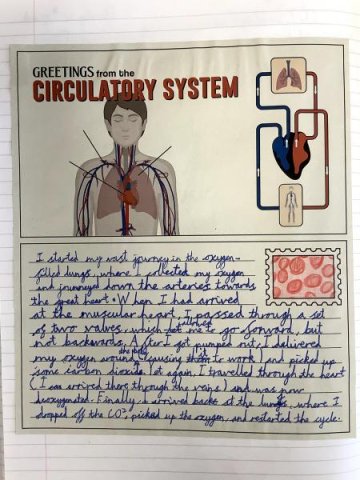 GREETINGS from the
CIRCULATORY SYSTEM
I started my vast journey in the oxygen-
filled lungs, where I collected my oxygen
and journeyed down the arteries towards
the great heart. When I had arrived
at the muscular heart, I passed through a set
of two valves, which allowed me to go forward, but
not backwards. After I got pumped out, I delivered
my oxygen around the body (causing it to work) and picked up
some carbon dioxide. Yet again, I travelled through the heart
(I am arrived there through the veins) and was now
deoxygenated. Finally, I arrived back at the lungs, where I
dropped off the CO², picked up the oxygen, and restarted the cycle.